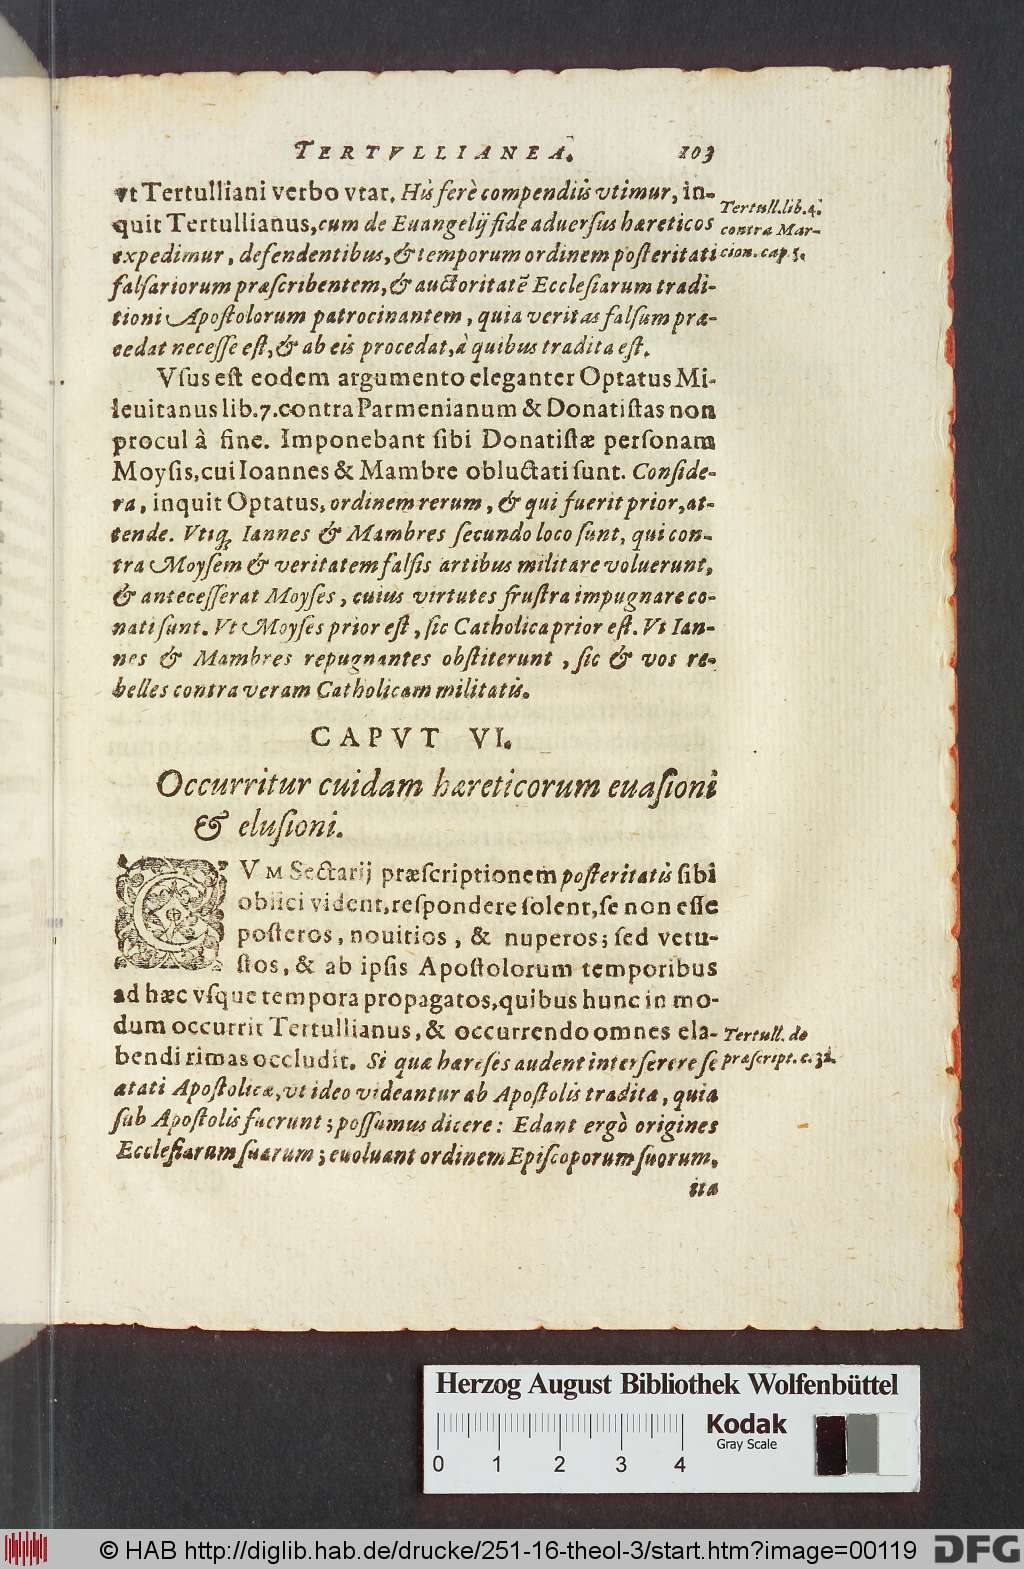 TERTVLLIANEA. 103
vt Tertulliani verbo vtar. His ferè compendiis vtimur, in-
quit Tertullianus, cum de Euangelij fide aduersus hæreticos
expedimur, defendentibus, & temporum ordinem posteritati
falsariorum præscribentem, & auctoritatē Ecclesiarum tradi-
tioni Apostolorum patrocinantem, quia veritas falsum præ-
cedat necesse est, & ab eis procedat, à quibus tradita est.
Tertull. lib. 4.
contra Mar-
cion. cap. 5.
Vsus est eodem argumento eleganter Optatus Mi-
leuitanus lib. 7. contra Parmenianum & Donatistas non
procul à fine. Imponebant sibi Donatistæ personam
Moysis, cui Ioannes & Mambre obluctati sunt. Conside-
ra, inquit Optatus, ordinem rerum, & qui fuerit prior, at-
tende. Vtiq; Iannes & Mambres secundo loco sunt, qui con-
tra Moysem & veritatem falsis artibus militare voluerunt,
& antecesserat Moyses, cuius virtutes frustra impugnare co-
nati sunt. Vt Moyses prior est, sic Catholica prior est. Vt Ian-
nes & Mambres repugnantes obstiterunt, sic & vos re-
belles contra veram Catholicam militatis.
CAPVT VI.
Occurritur cuidam hæreticorum euasioni
& elusioni.
CVM Sectarij præscriptionem posteritatis sibi
obiici vident, respondere solent, se non esse
posteros, nouitios, & nuperos; sed vetu-
stos, & ab ipsis Apostolorum temporibus
ad hæc vsque tempora propagatos, quibus hunc in mo-
dum occurrit Tertullianus, & occurrendo omnes ela-
bendi rimas occludit. Si quæ hæreses audent interserere se
ætati Apostolicæ, vt ideo videantur ab Apostolis traditæ, quia
sub Apostolis fuerunt; possumus dicere: Edant ergò origines
Ecclesiarum suarum; euoluant ordinem Episcoporum suorum,
Tertull. de
præscript. c. 32.
ita
Herzog August Bibliothek Wolfenbüttel
Kodak
Gray Scale
0 1 2 3 4
© HAB http://diglib.hab.de/drucke/251-16-theol-3/start.htm?image=00119
DFG